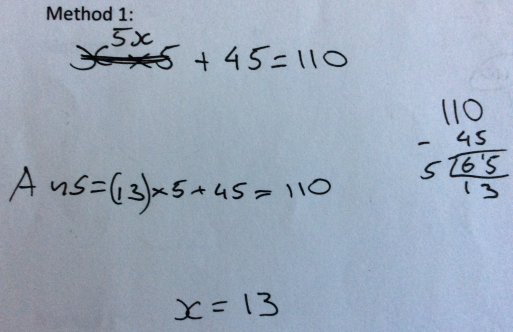 Method 1:
5x
x × 5 + 45 = 110
110
- 45
5 6 15
13
Ans = (13) × 5 + 45 = 110
x = 13